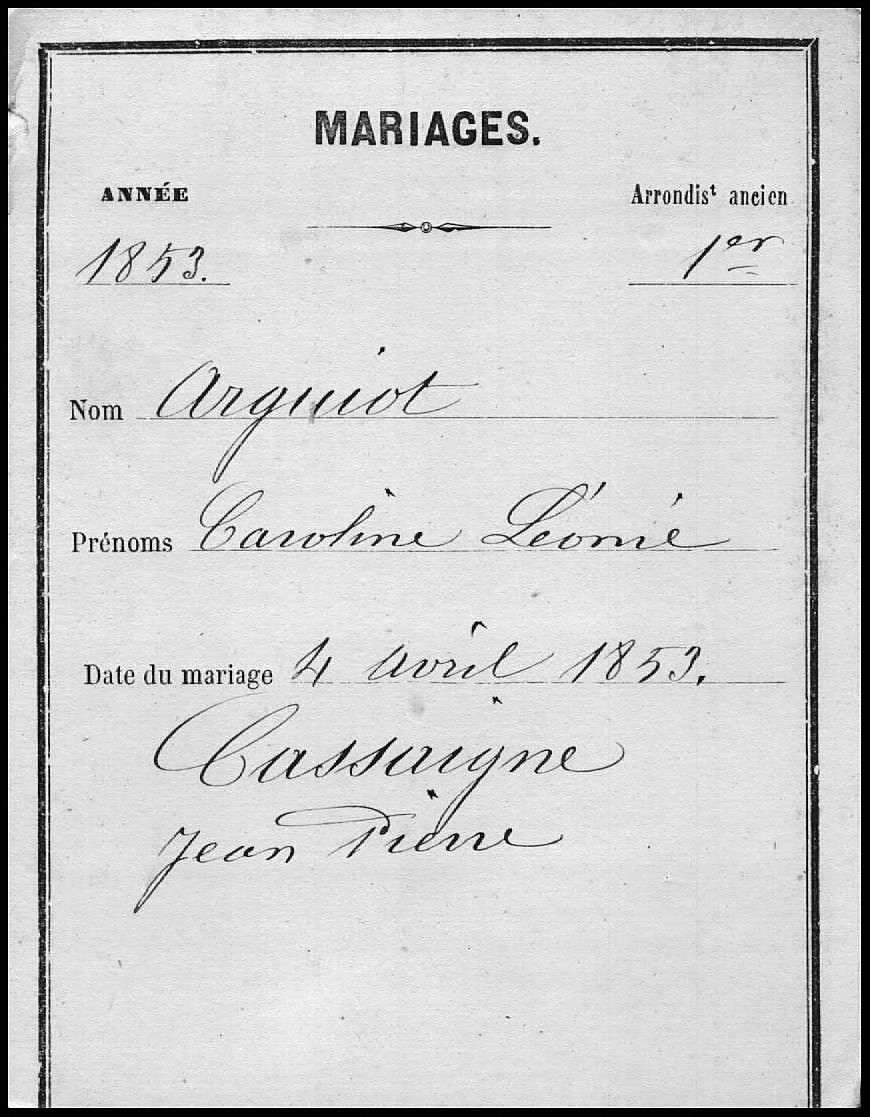 MARIAGES.
ANNÉE
Arrondis^t ancien
1853.
1er
Nom Arguiot
Prénoms Caroline Léonie
Date du mariage 4 avril 1853.
Cassaigne
Jean Pierre